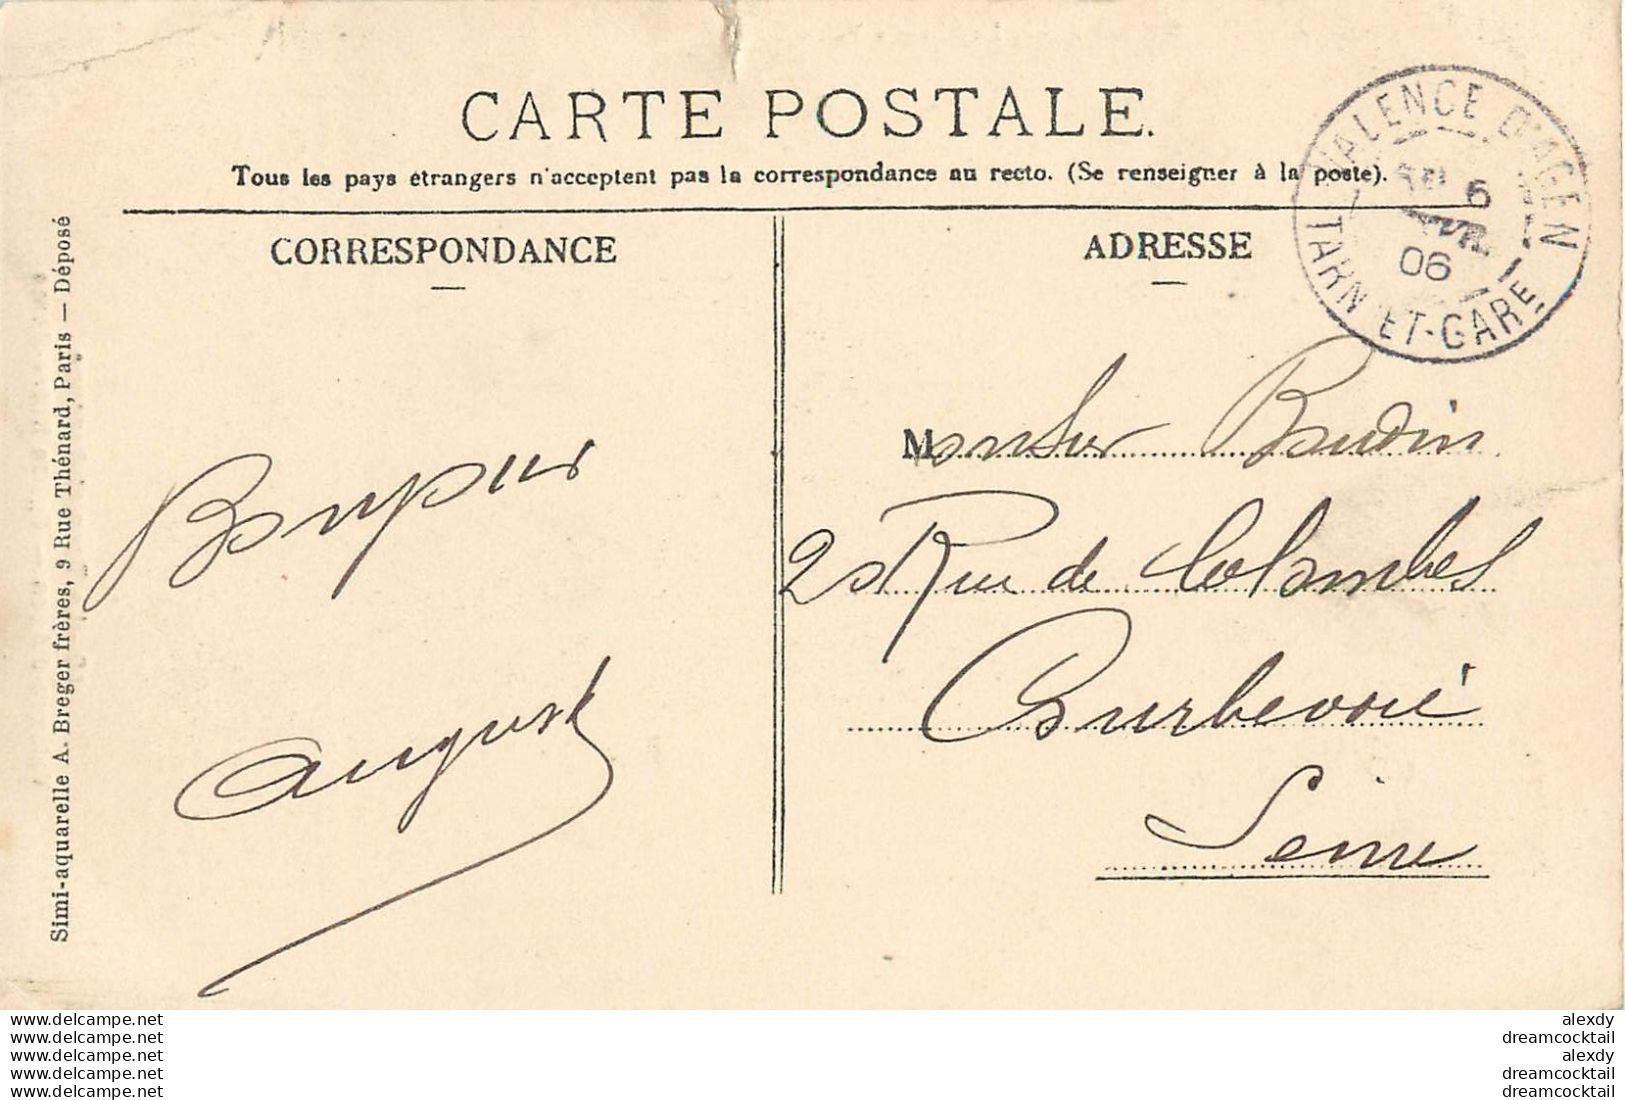 CARTE POSTALE.
Tous les pays étrangers n'acceptent pas la correspondance au recto. (Se renseigner à la poste).
VALENCE D'AGEN
6
06
TARN-ET-GARE.
CORRESPONDANCE
ADRESSE
Simi-aquarelle A. Breger frères, 9 Rue Thénard, Paris — Déposé
Bonjour
August
Monsieur Baudin
Rue de Colombes
Courbevoie
Seine
www.delcampe.net
www.delcampe.net
www.delcampe.net
www.delcampe.net
www.delcampe.net
alexdy
dreamcocktail
alexdy
dreamcocktail
dreamcocktail